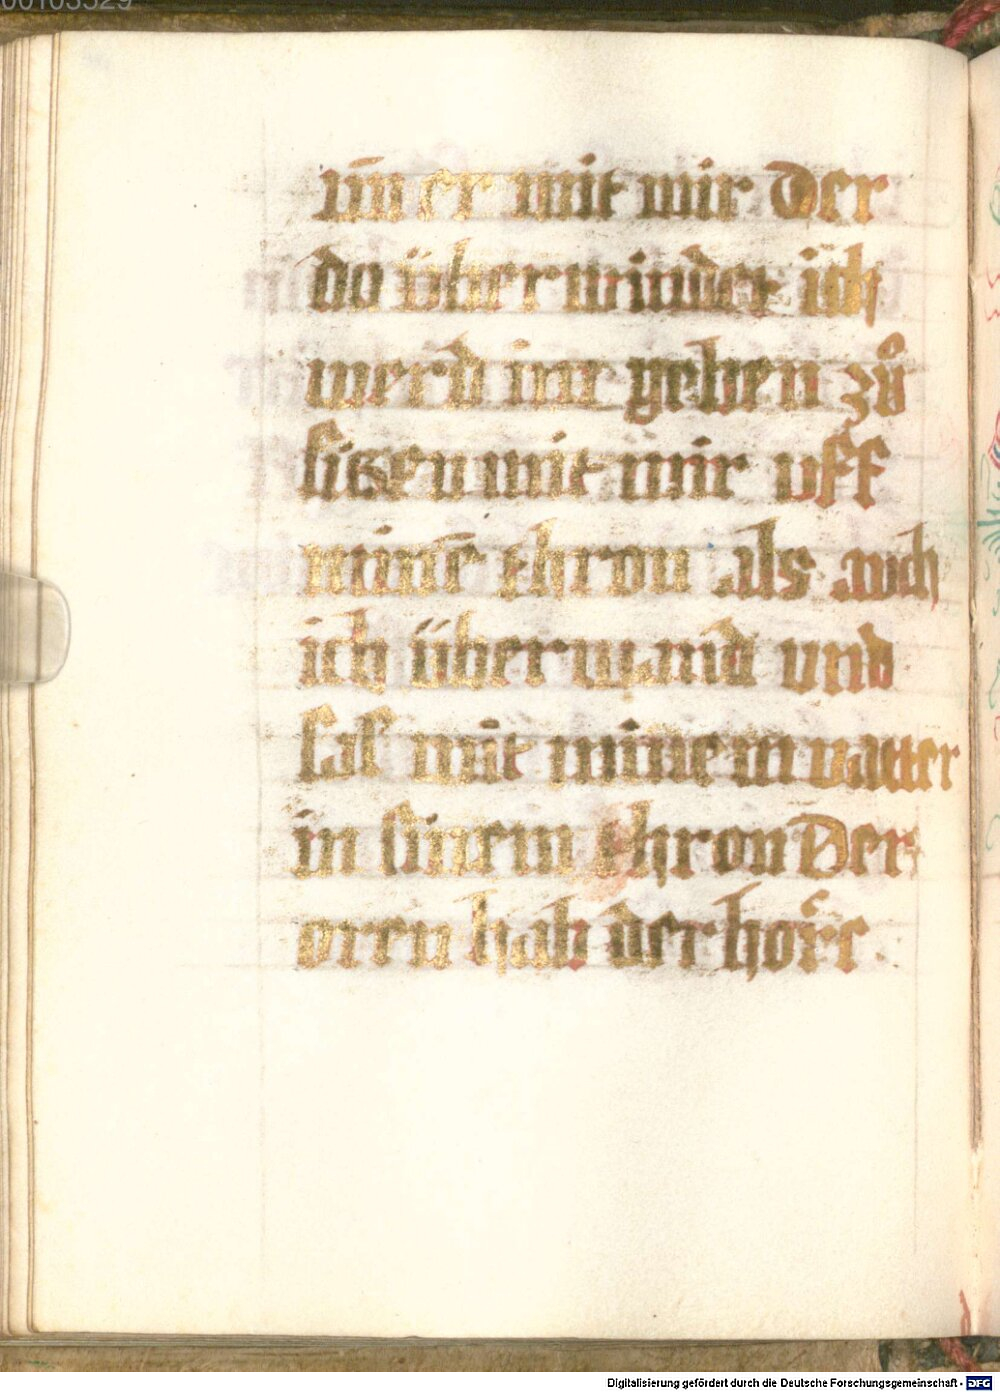 00103529
un er mit mir Der
do überwindet ich
werd im geben zů
siczen mit mir uff
minē thron als auch
ich überwand und
sas mit minem vatter
in sinem thron Der
oren hab der höre .
Digitalisierung gefördert durch die Deutsche Forschungsgemeinschaft - DFG